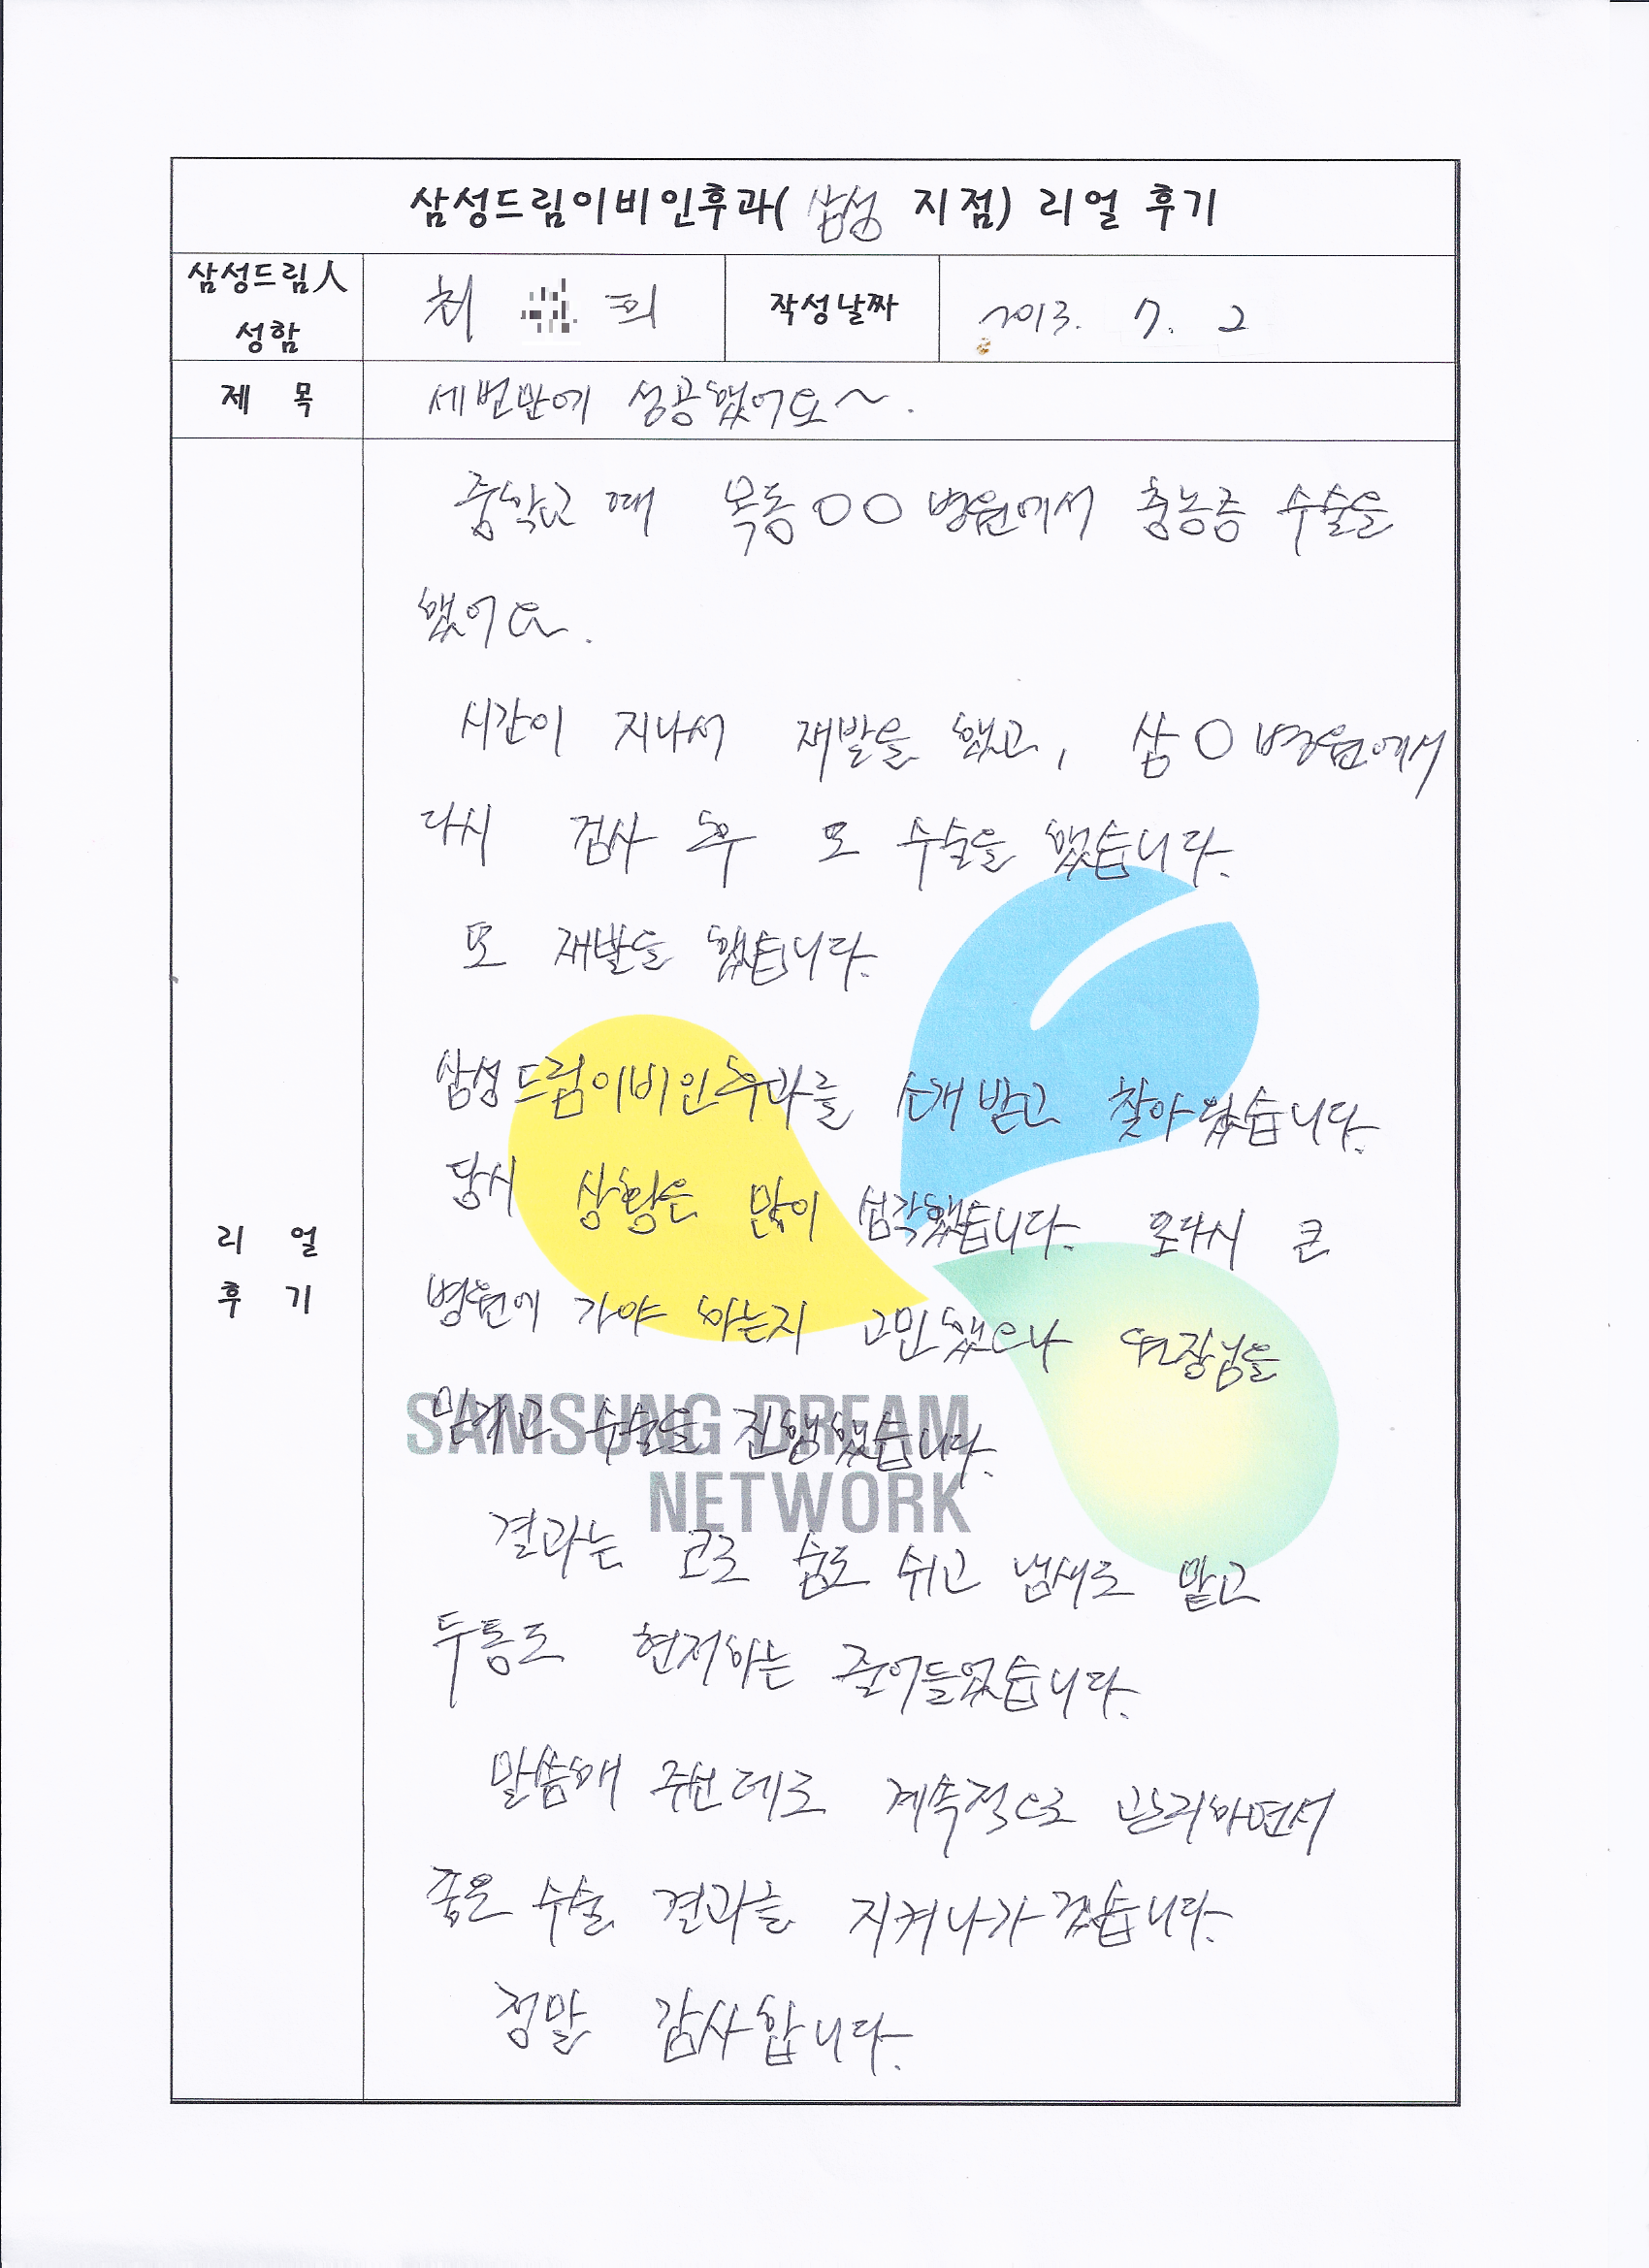 삼성드림이비인후과( 삼성 지점) 리얼 후기
삼성드림人
성함
최 희
작성날짜
2013. 7. 2
제 목
세번만에 성공했어요~.
리 얼
후 기
중학교 때 목동 ○○ 병원에서 충농증 수술을
했어요.
시간이 지나서 재발을 했고, 삼○병원에서
다시 검사 후 또 수술을 했습니다.
또 재발을 했습니다.
삼성드림이비인후과를 소개 받고 찾아왔습니다.
당시 상황은 많이 심각했습니다. 또다시 큰
병원에 가야 하는지 고민했으나 원장님을
믿고 수술을 진행했습니다.
SAMSUNG DREAM
NETWORK
결과는 코로 숨도 쉬고 냄새도 맡고
두통도 현저하는 줄어들었습니다.
말씀해 주신데로 계속적으로 관리하면서
좋은 수술 결과를 지켜나가겠습니다.
정말 감사합니다.